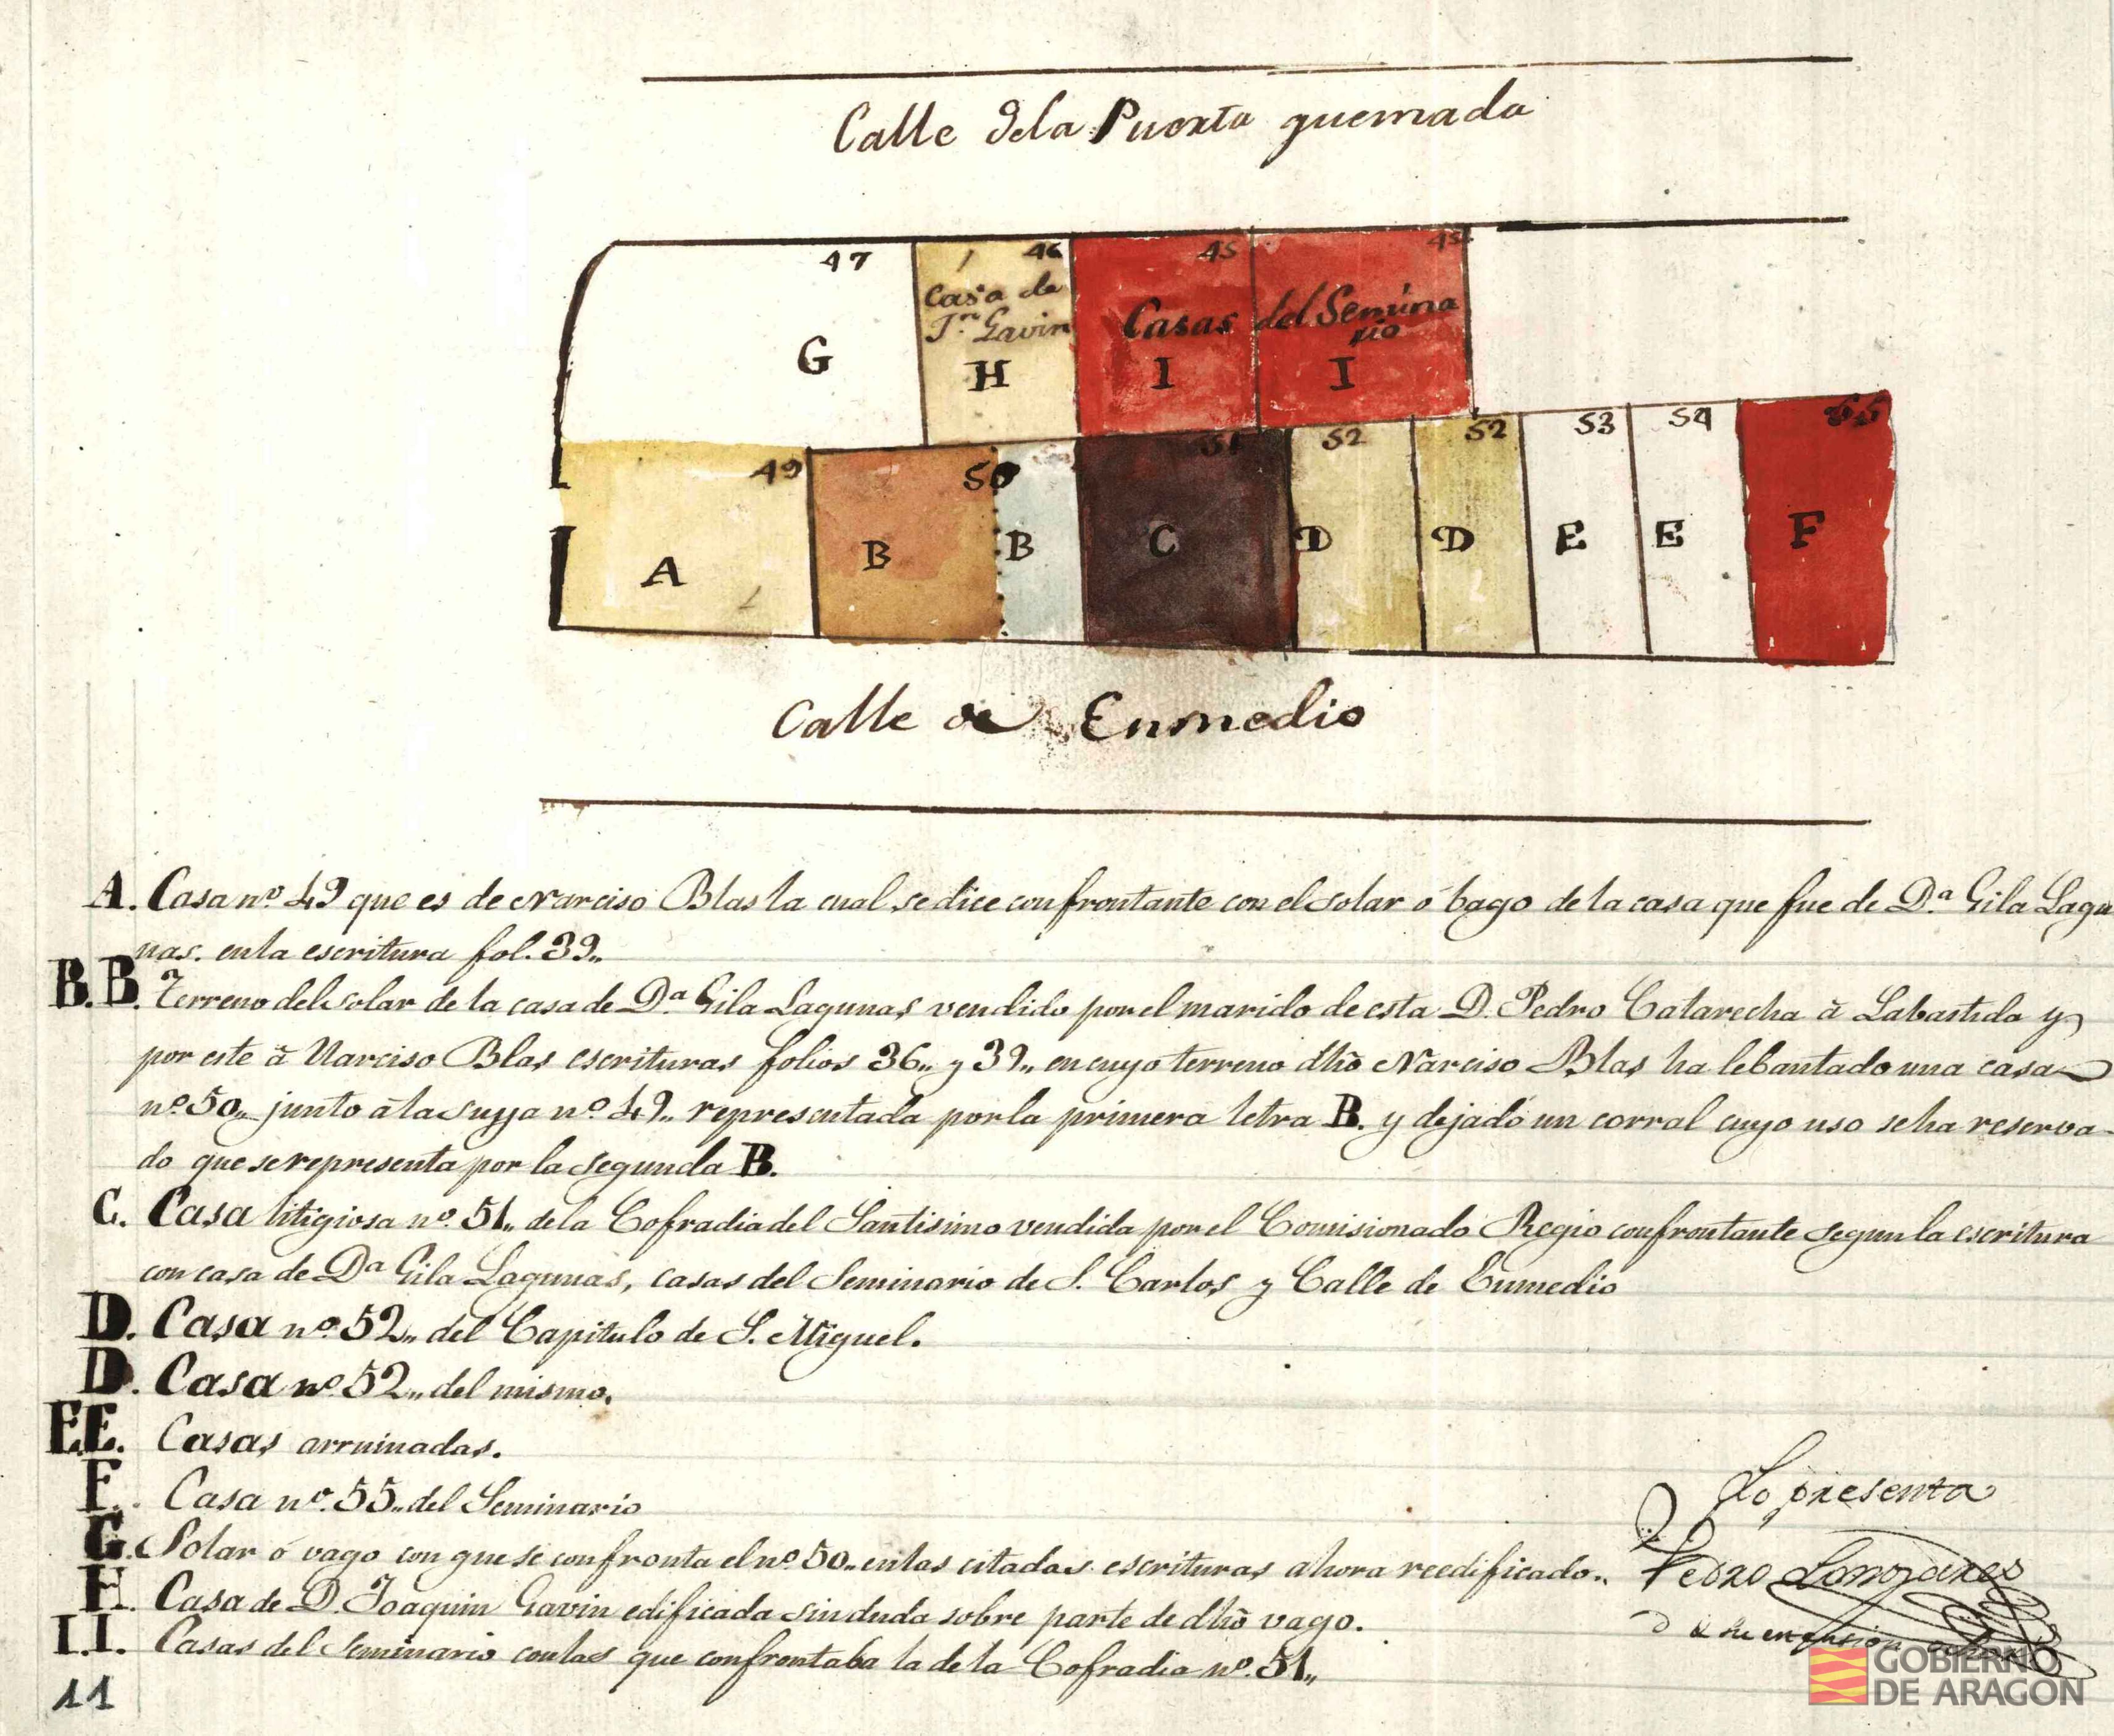 Calle dela Puerta quemada
47
46
45
45
Casa de
Jn. Gavin
Casas del Semina
rio
G
H
I
I
49
50
51
52
52
53
54
55
A
B
B
C
D
D
E
E
F
Calle de Enmedio
A. Casa nº 49 que es de Narciso Blas la cual se dice confrontante con el solar ó bago de la casa que fue de Dª Gila Lagu
nas. en la escritura fol. 39.,
B.B. Terreno del solar de la casa de Dª Gila Lagunas vendido por el marido de esta D. Pedro Catarecha à Labastida y
por este à Narciso Blas escrituras folios 36., y 39., en cuyo terreno dho Narciso Blas ha lebantado una casa
nº 50., junto à la suya nº 49., representada por la primera letra B. y dejado un corral cuyo uso se ha reserva-
do que se representa por la segunda B.
C. Casa litigiosa nº 51., de la Cofradia del Santisimo vendida por el Comisionado Regio confrontante segun la escritura
con casa de Dª Gila Lagunas, casas del Seminario de S. Carlos y Calle de Enmedio
D. Casa nº 52., del Capitulo de S. Miguel.
D. Casa nº 52., del mismo.
EE. Casas arruinadas.
F. Casa nº 55., del Seminario
G. Solar ó vago con que se confronta el nº 50., en las citadas escrituras ahora reedificado.,
H. Casa de D. Joaquin Gavin edificada sin duda sobre parte de dho vago.
I.I. Casas del Seminario con las que confrontaba la de la Cofradia nº 51.,
11
Lo presenta
Pedro
GOBIERNO
DE ARAGON